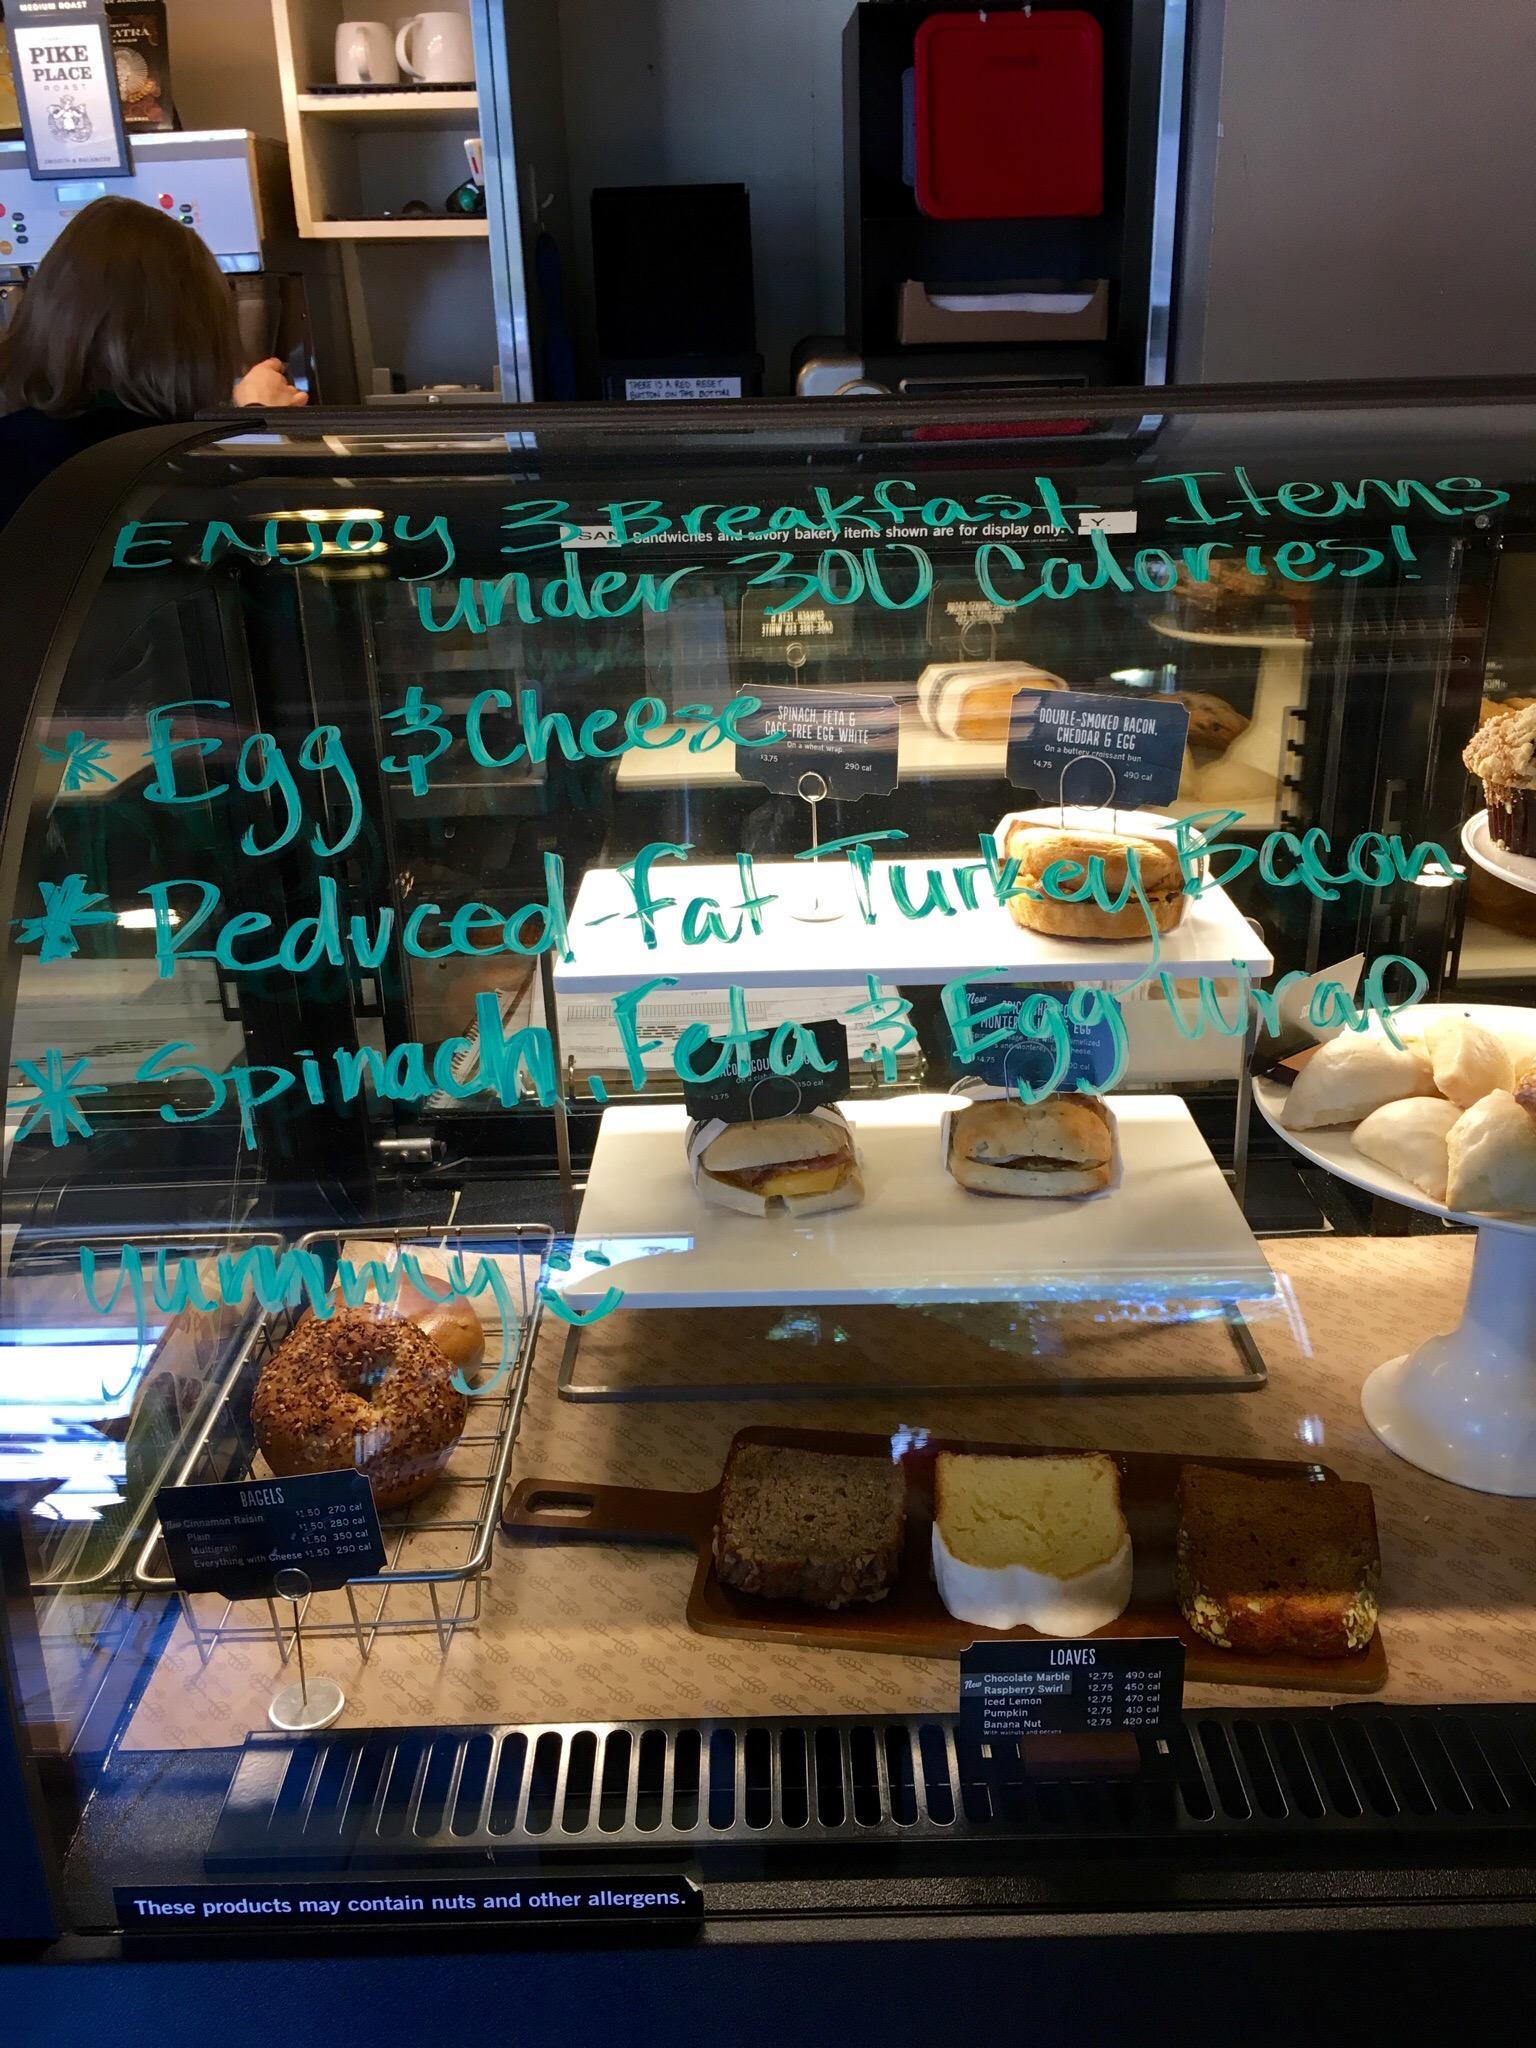 MEDIUM ROAST
PIKE
PLACE
ROAST
SMOOTH & BALANCED
THERE IS A RED RESET
BUTTON ON THE BOTTOM
ENJOY 3 Breakfast Items
Sandwiches and savory bakery items shown are for display only.
under 300 Calories!
* Egg & Cheese
SPINACH, FETA &
CAGE-FREE EGG WHITE
On a wheat wrap.
$3.75 290 cal
DOUBLE-SMOKED BACON,
CHEDDAR & EGG
On a buttery croissant bun
$4.75 490 cal
* Reduced-fat Turkey Bacon
* Spinach, Feta & Egg Wrap
New
$3.75 350 cal
$4.75
Yummy
BAGELS
New Cinnamon Raisin $1.50 270 cal
Plain $1.50 280 cal
Multigrain $1.50 350 cal
Everything with Cheese $1.50 290 cal
LOAVES
New Chocolate Marble $2.75 490 cal
Raspberry Swirl $2.75 450 cal
Iced Lemon $2.75 470 cal
Pumpkin $2.75 410 cal
Banana Nut $2.75 420 cal
With walnuts and pecans
These products may contain nuts and other allergens.